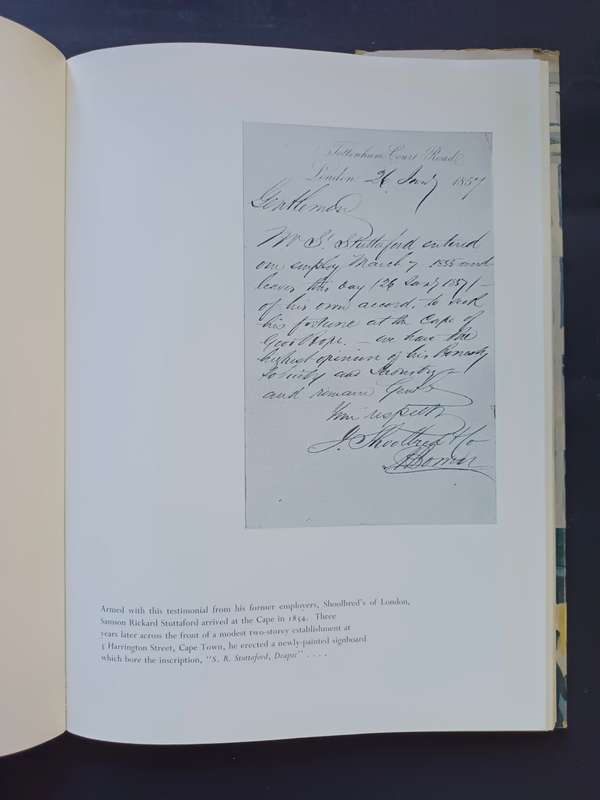 Tottenham Court Road
London 26 Jany 1857
Gentlemen
Mr S. Stuttaford entered
our employ March 7 1855 and
leaves this day (26 Jany 1857)
of his own accord, to seek
his fortune at the Cape of
Good Hope. — we have the
highest opinion of his honesty
sobriety and Industry
and remain Gents
Your respectly
J. Shoolbred & Co
Armed with this testimonial from his former employers, Shoolbred's of London,
Samson Rickard Stuttaford arrived at the Cape in 1854. Three
years later across the front of a modest two-storey establishment at
3 Harrington Street, Cape Town, he erected a newly-painted signboard
which bore the inscription, "S. R. Stuttaford, Draper" . . . .